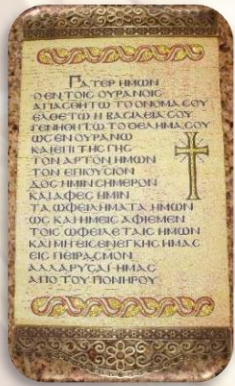 ΠΑΤΕΡ ΗΜΩΝ
Ο ΕΝ ΤΟΙϹ ΟΥΡΑΝΟΙϹ
ΑΓΙΑϹΘΗΤΩ ΤΟ ΟΝΟΜΑ ϹΟΥ
ΕΛΘΕΤΩ Η ΒΑϹΙΛΕΙΑ ϹΟΥ
ΓΕΝΗΘΗΤΩ ΤΟ ΘΕΛΗΜΑ ϹΟΥ
ΩϹ ΕΝ ΟΥΡΑΝΩ
ΚΑΙ ΕΠΙ ΤΗϹ ΓΗϹ
ΤΟΝ ΑΡΤΟΝ ΗΜΩΝ
ΤΟΝ ΕΠΙΟΥϹΙΟΝ
ΔΟϹ ΗΜΙΝ ϹΗΜΕΡΟΝ
ΚΑΙ ΑΦΕϹ ΗΜΙΝ
ΤΑ ΩΦΕΙΛΗΜΑΤΑ ΗΜΩΝ
ΩϹ ΚΑΙ ΗΜΕΙϹ ΑΦΙΕΜΕΝ
ΤΟΙϹ ΩΦΕΙΛΕΤΑΙϹ ΗΜΩΝ
ΚΑΙ ΜΗ ΕΙϹΕΝΕΓΚΗϹ ΗΜΑϹ
ΕΙϹ ΠΕΙΡΑϹΜΟΝ
ΑΛΛΑ ΡΥϹΑΙ ΗΜΑϹ
ΑΠΟ ΤΟΥ ΠΟΝΗΡΟΥ